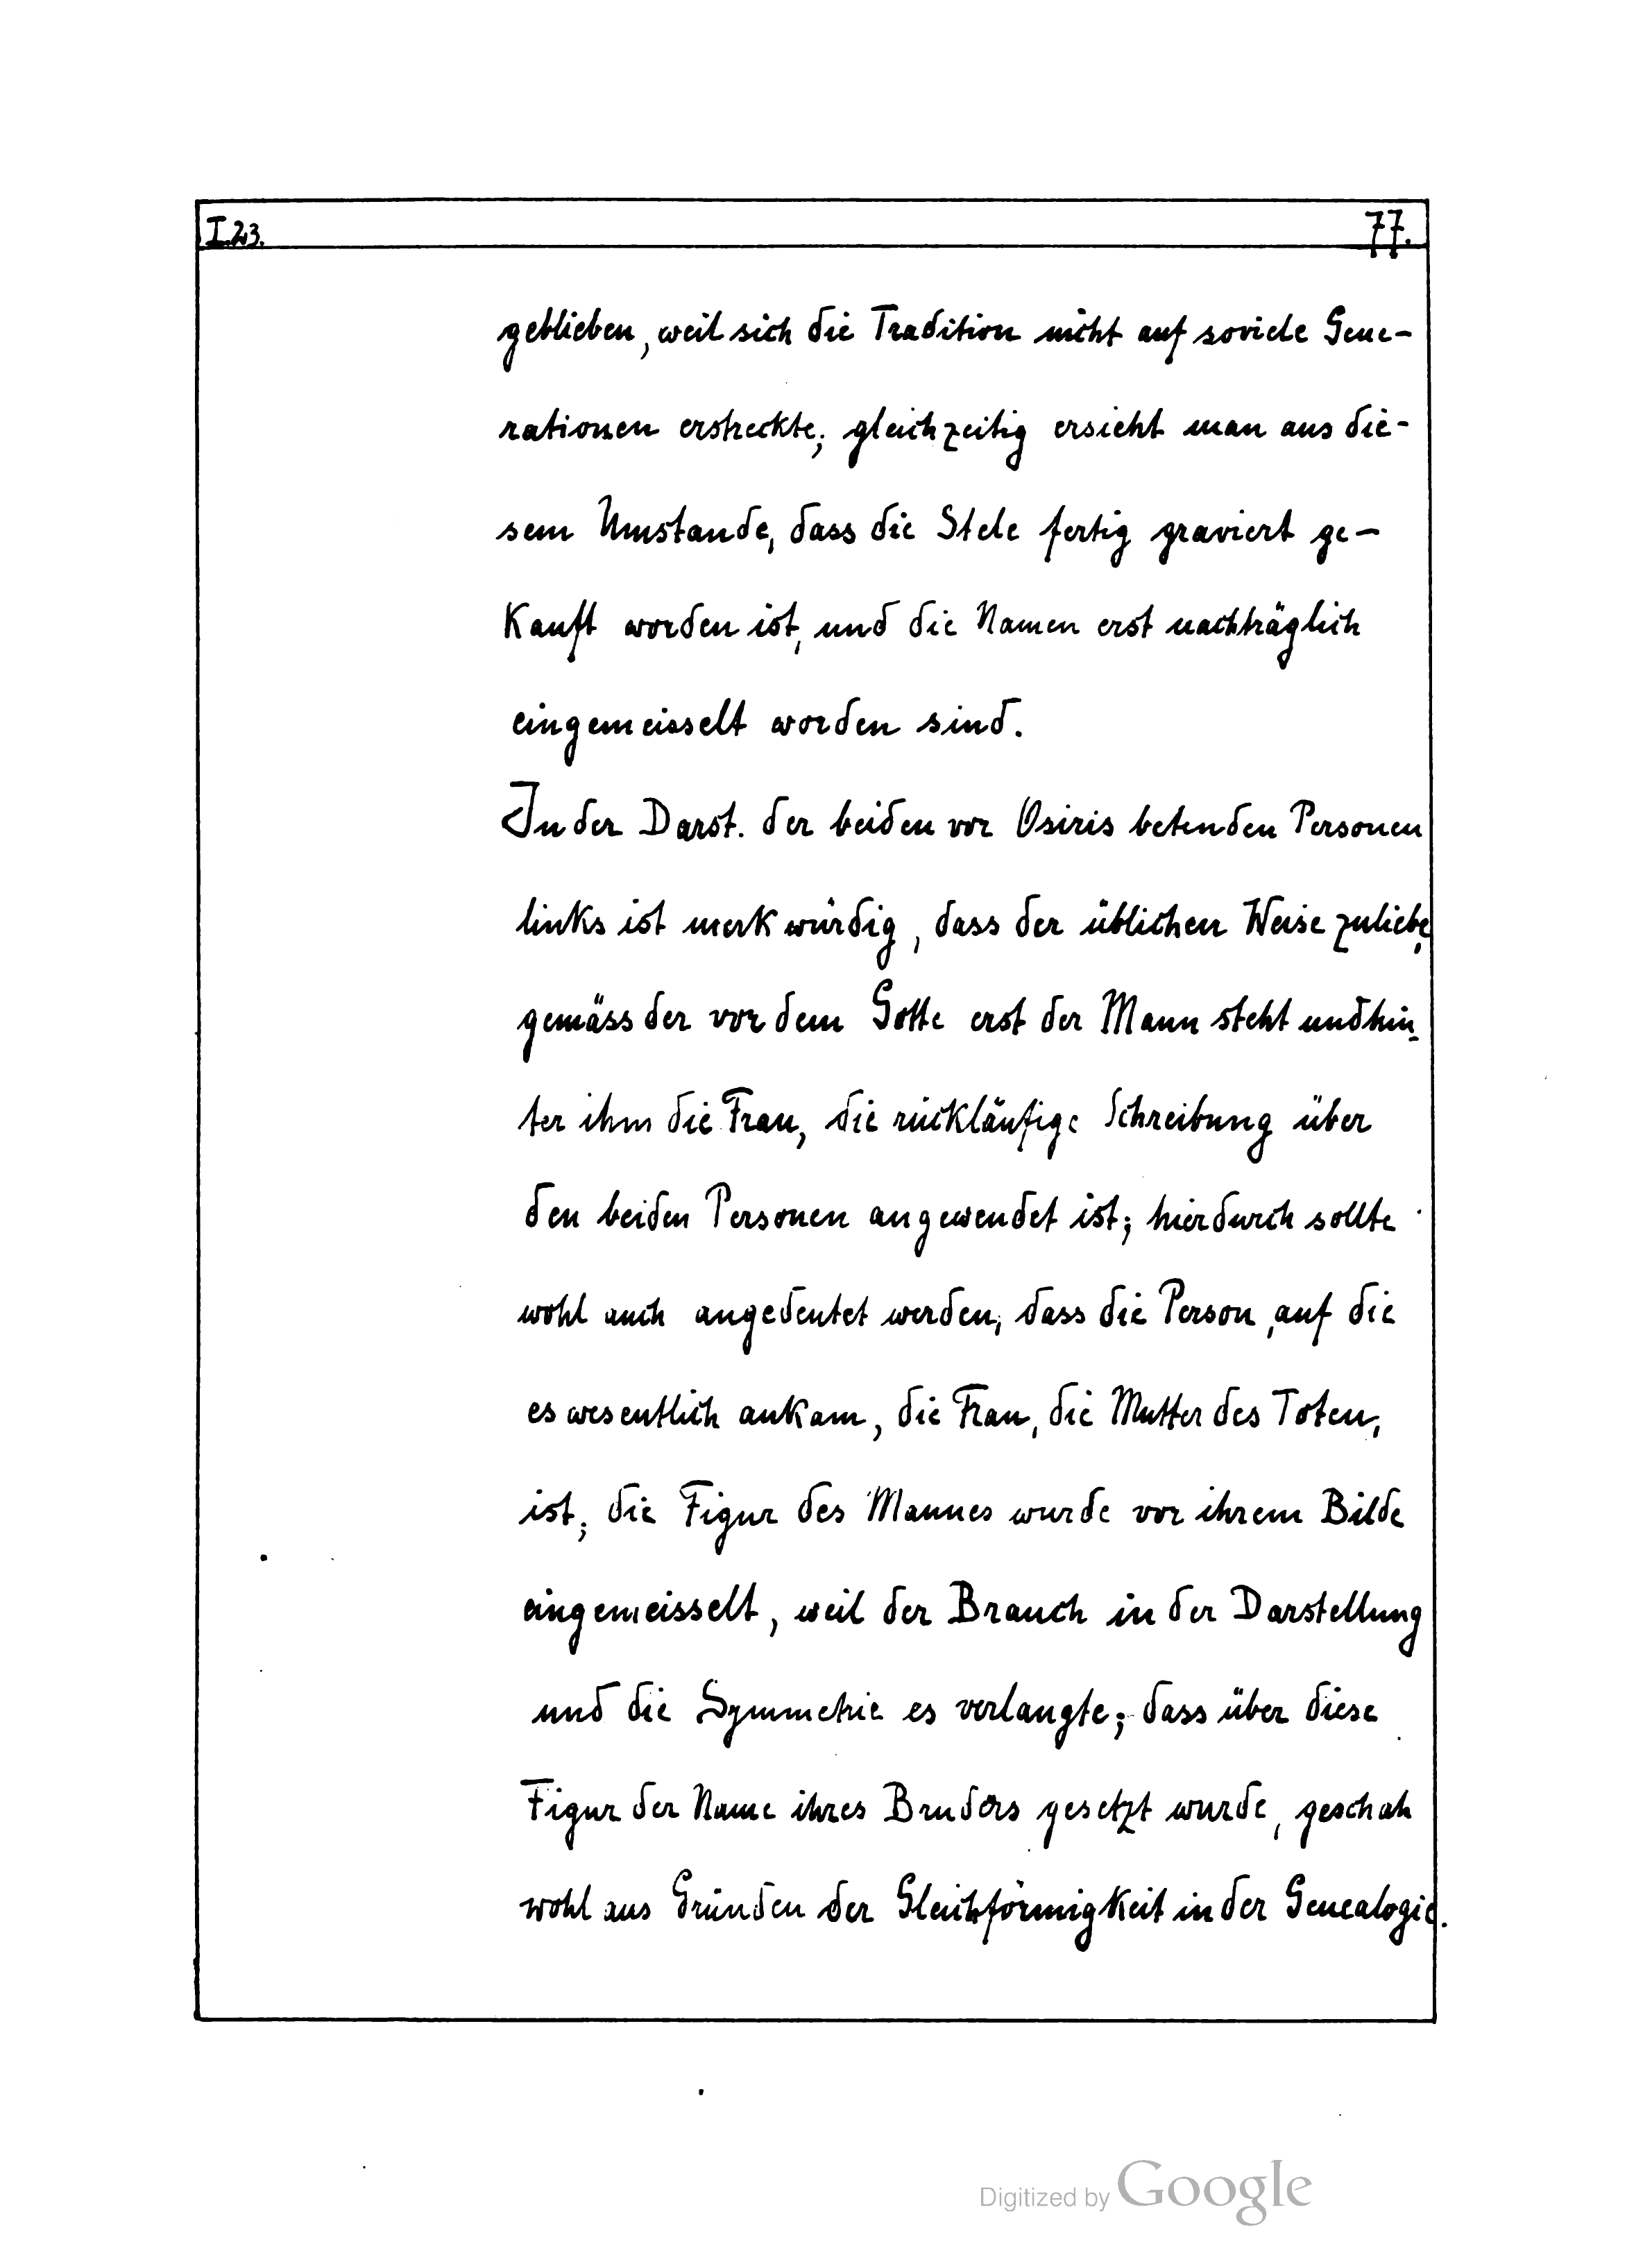 I.23.
77.
geblieben, weil sich die Tradition nicht auf soviele Gene-
rationen erstreckte; gleichzeitig ersieht man aus die-
sem Umstande, dass die Stele fertig graviert ge-
kauft worden ist, und die Namen erst nachträglich
eingemeisselt worden sind.
In der Darst. der beiden vor Osiris betenden Personen
links ist merkwürdig, dass der üblichen Weise zuliebe,
gemäss der vor dem Gotte erst der Mann steht und hin-
ter ihm die Frau, die rückläufige Schreibung über
den beiden Personen angewendet ist; hierdurch sollte
wohl auch angedeutet werden, dass die Person, auf die
es wesentlich ankam, die Frau, die Mutter des Toten,
ist; die Figur des Mannes wurde vor ihrem Bilde
eingemeisselt, weil der Brauch in der Darstellung
und die Symmetrie es verlangte; dass über diese
Figur der Name ihres Bruders gesetzt wurde, geschah
wohl aus Gründen der Gleichförmigkeit in der Genealogie.
Digitized by Google